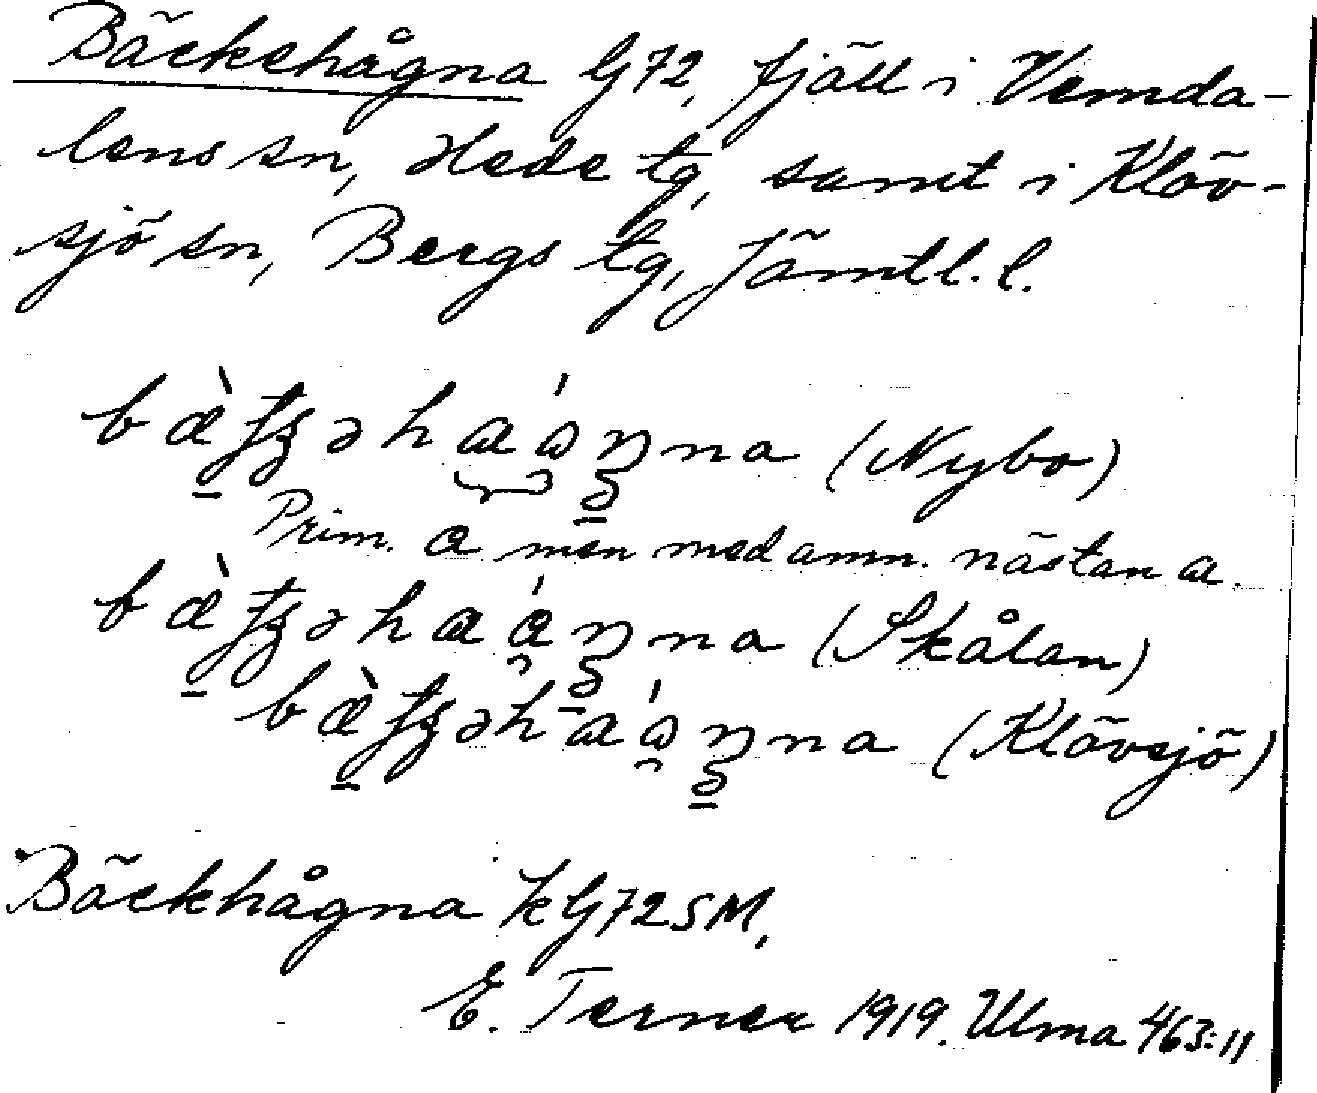 Bäckehågna G72, fjäll i Vemda-
lens sn, Hede tg, samt i Klöv-
sjö sn, Bergs tg, Jämtl. l.
(Nybo)
Prim. a men med amn. nästan a.
(Skålan)
(Klövsjö)
Bäckhågna kG72SM,
E. Terner 1919. Ulma 463:11